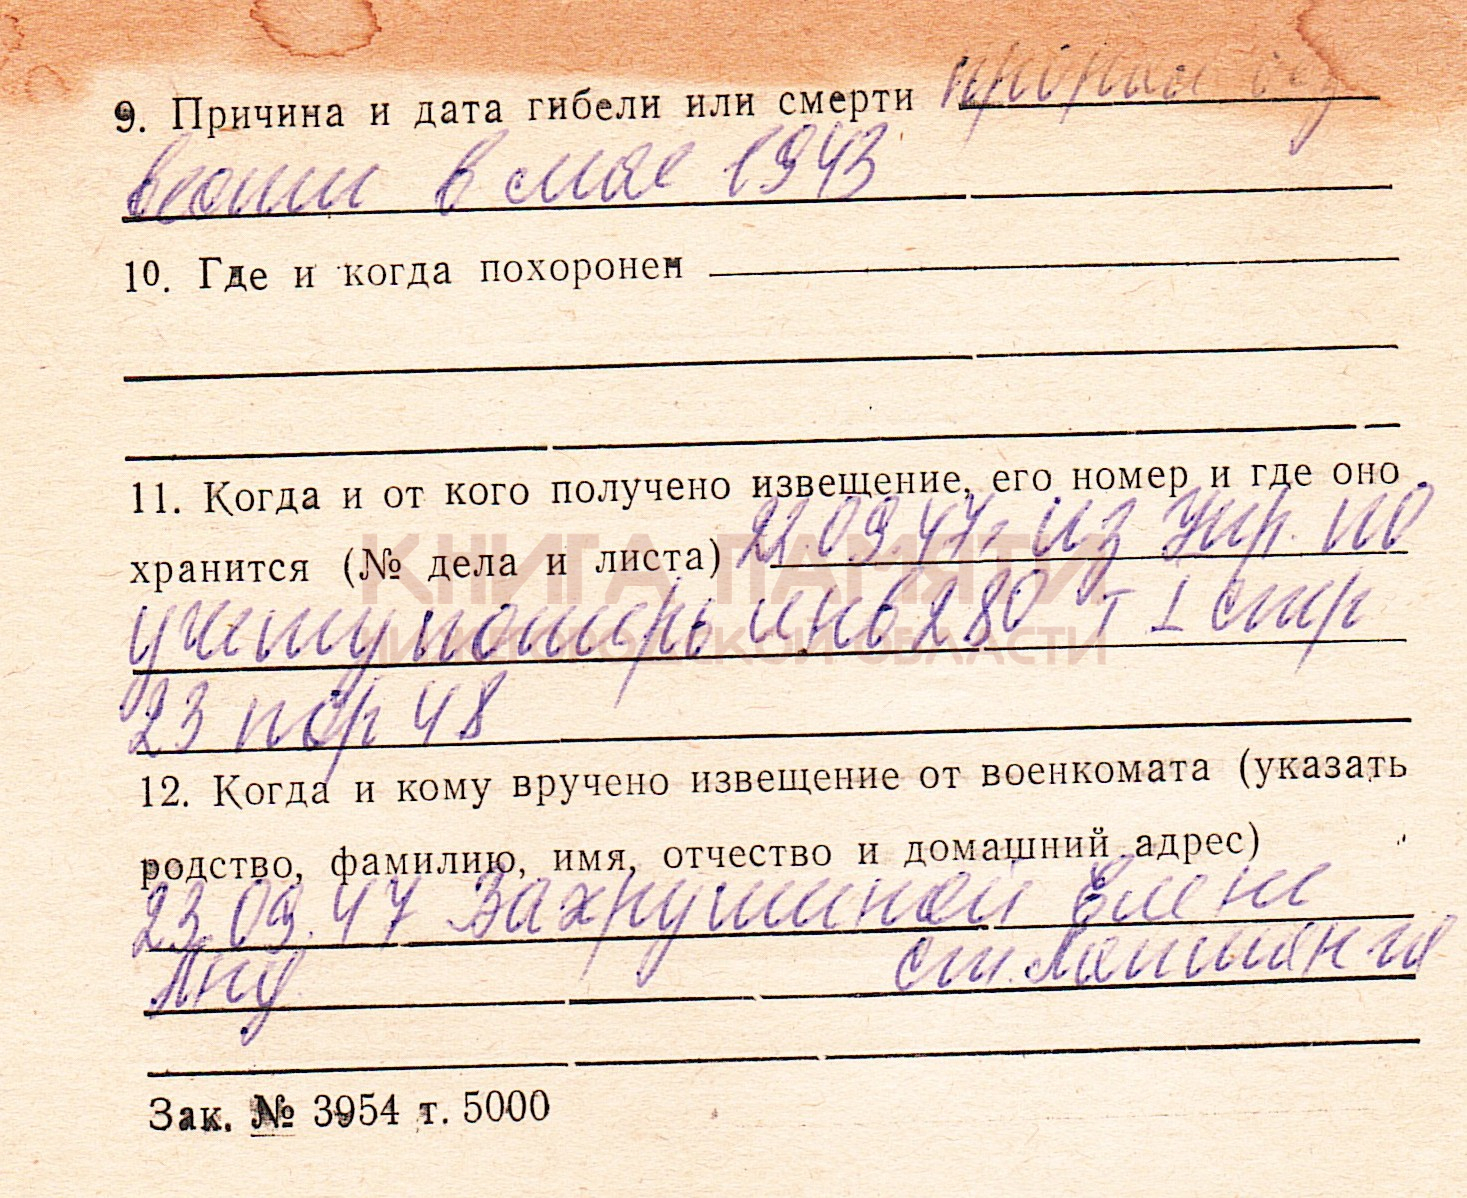 9. Причина и дата гибели или смерти пропал без
вести в мае 1943
10. Где и когда похоронен
11. Когда и от кого получено извещение, его номер и где оно
хранится (№ дела и листа) 22.09.47г из Упр. по
КНИГА ПАМЯТИ
учету потерь инв 280 т 1 стр
НИЖЕГОРОДСКОЙ ОБЛАСТИ
23 пор 48
12. Когда и кому вручено извещение от военкомата (указать
родство, фамилию, имя, отчество и домашний адрес)
23.09.47 Вахрушиной Елене
ст. Лапшанга
Зак. № 3954 т. 5000